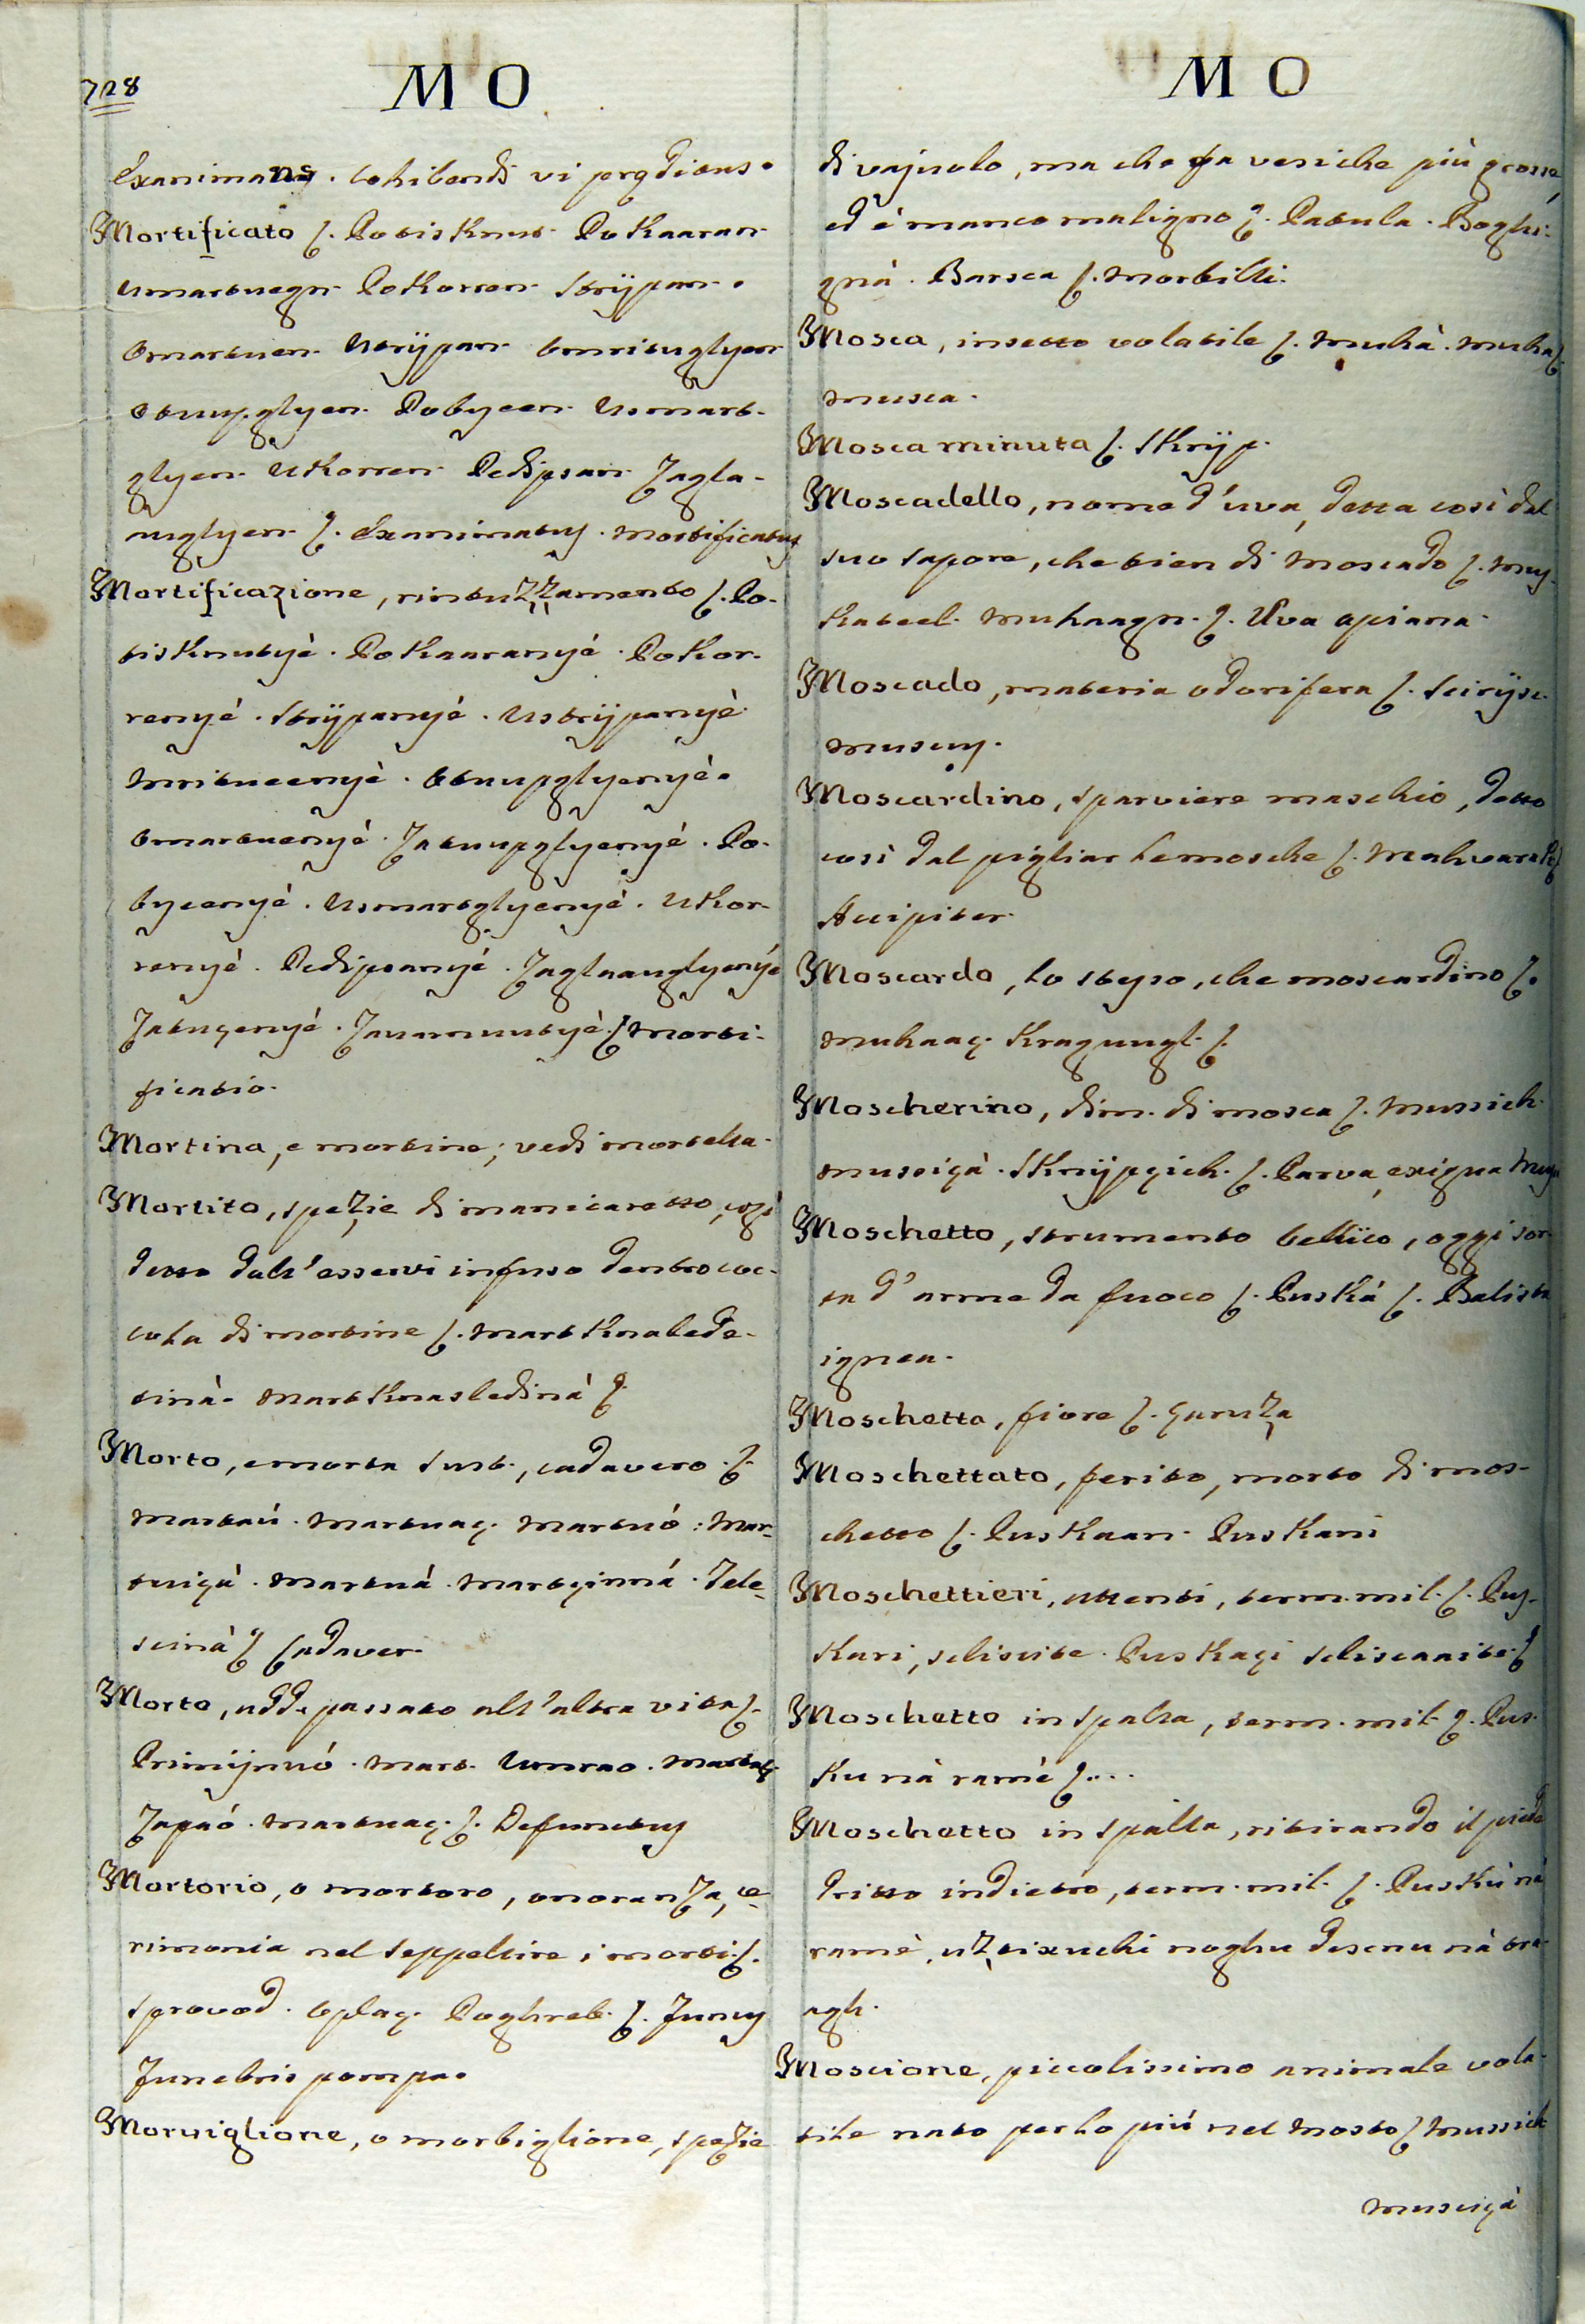 728
M O
Exanimans. Cohibendi vi pręditus.
Mortificato ſ. Potisknut. Pokaaran.
Umartvegn. Pokorren. Strÿpan.
Omartven. Ustrÿpan. Omrituglyen
Otuupglyen. Pobyeen. Usmart-
glyen. Ukorren. Pedipsan. Zagla-
uuglyen. ſ. Examinatus. Mortificatus
Mortificazione, rintuzzamento ſ. Po-
tisknutyé. Pokaaranyé. Pokor-
renyé. Strÿpanyé. Ustrÿpanyè.
Mritueenyè. Otuupglyenyè.
Omartuenyè. Zatuupglyenyé. Po-
byeenyé. Usmartglyenyé. Ukor-
renyè. Pedipsanyé. Zaglaauglyenyé
Zatuçenyé. Zauarnuutyè. ſ. Morti-
ficatio.
Mortina, e mortine; vedi mortella.
Mortito, spezie di manicaretto, così
detto dall'esservi infuso dentro coc-
cola di mortine ſ. Martknalede-
tinà. Martknasledinà ſ.
Morto, e morta sust., cadavero. ſ.
Martaú. Martuaç. Martuó: Mar-
tuiçà. Martuá. Martçinná. Tele-
scinà ſ. Cadaver.
Morto, add. passato all'altra vita ſ.
Priminuó. Mart. Umrao. Martaç.
Zapaó. Martuaç. ſ. Defunctus
Mortorio, o mortoro, onoranza, ce-
rimonia nel seppellire i morti. ſ.
Sprovod. Oplaç. Poghreb. ſ. Funus
Funebris pompa.
Morviglione, o morbiglione, spezie
M O
di vajuolo, ma che fa vesiche più grosse,
ed è manco maligno ſ. Patula. Boghi-
gnà. Barsca ſ. Morbilli.
Mosca, insetto volatile ſ. Muhà. Muha ſ.
Musca.
Mosca minuta ſ. Skrÿp.
Moscadello, nome d'uva, detta così dal
suo sapore, che tien di moscado ſ. Mus-
kateel. Muhaagn. ſ. Uva apiana.
Moscado, materia odorifera ſ. Scirÿsc.
Muscus.
Moscardino, sparviere maschio, detto
così dal pigliar le mosche ſ. Muhvarak ſ.
Accipiter.
Moscardo, lo stesso, che moscardino ſ.
Muhaaç. Kraguugl. ſ.
Moscherino, dim. di mosca ſ. Mussich.
Musciçà. Sknÿpçich. ſ. Parva, exigua Musca
Moschetto, strumento bellico, oggi sor-
ta d'arme da fuoco ſ. Puská ſ. Balista
ignea.
Moschetta, fiore ſ. Garuza
Moschettato, ferito, morto di mos-
chetto ſ. Puskaan. Puskani
Moschettieri, attenti, term. mil. ſ. Pus-
kari, sliscite. Puskaçi sliscaaite. ſ.
Moschetto in spalla, term. mil. ſ. Pus-
ku nà ramè ſ....
Moschetto in spalla, ritirando il piede
dritto indietro, term. mil. ſ. Puskú nà
ramè, uztixuchi noghu desnu nà tra-
agh.
Moscione, piccolissimo animale vola-
tile nato per lo più nel mosto ſ. Mussich
Musciçà